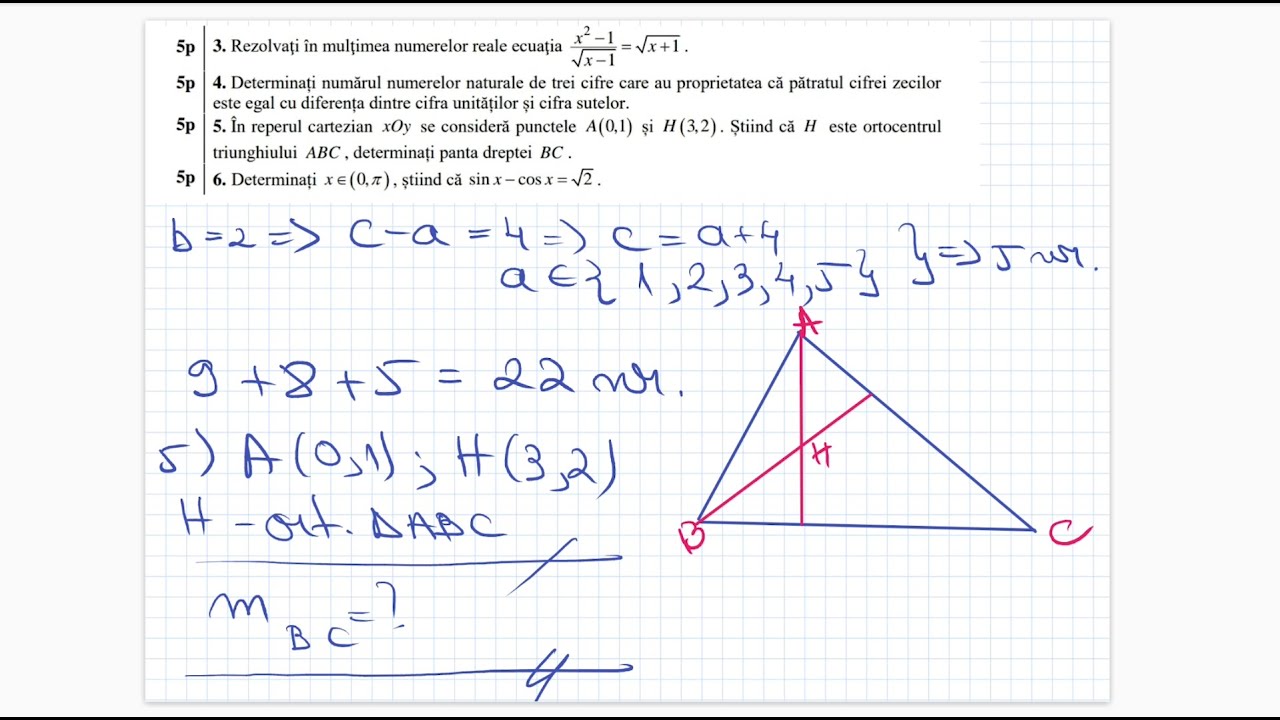 5p 3. Rezolvaţi în mulţimea numerelor reale ecuaţia (x² − 1)/√(x − 1) = √(x + 1) .
5p 4. Determinați numărul numerelor naturale de trei cifre care au proprietatea că pătratul cifrei zecilor
este egal cu diferența dintre cifra unităților și cifra sutelor.
5p 5. În reperul cartezian xOy se consideră punctele A(0,1) și H(3,2). Știind că H este ortocentrul
triunghiului ABC , determinați panta dreptei BC .
5p 6. Determinați x ∈ (0, π) , știind că sin x − cos x = √2 .
b = 2 => c − a = 4 => c = a + 4
a ∈ {1, 2, 3, 4, 5} } => 5 nr.
9 + 8 + 5 = 22 nr.
5) A(0,1) ; H(3,2)
H − ort. ΔABC
m BC = ?
A
H
B
C